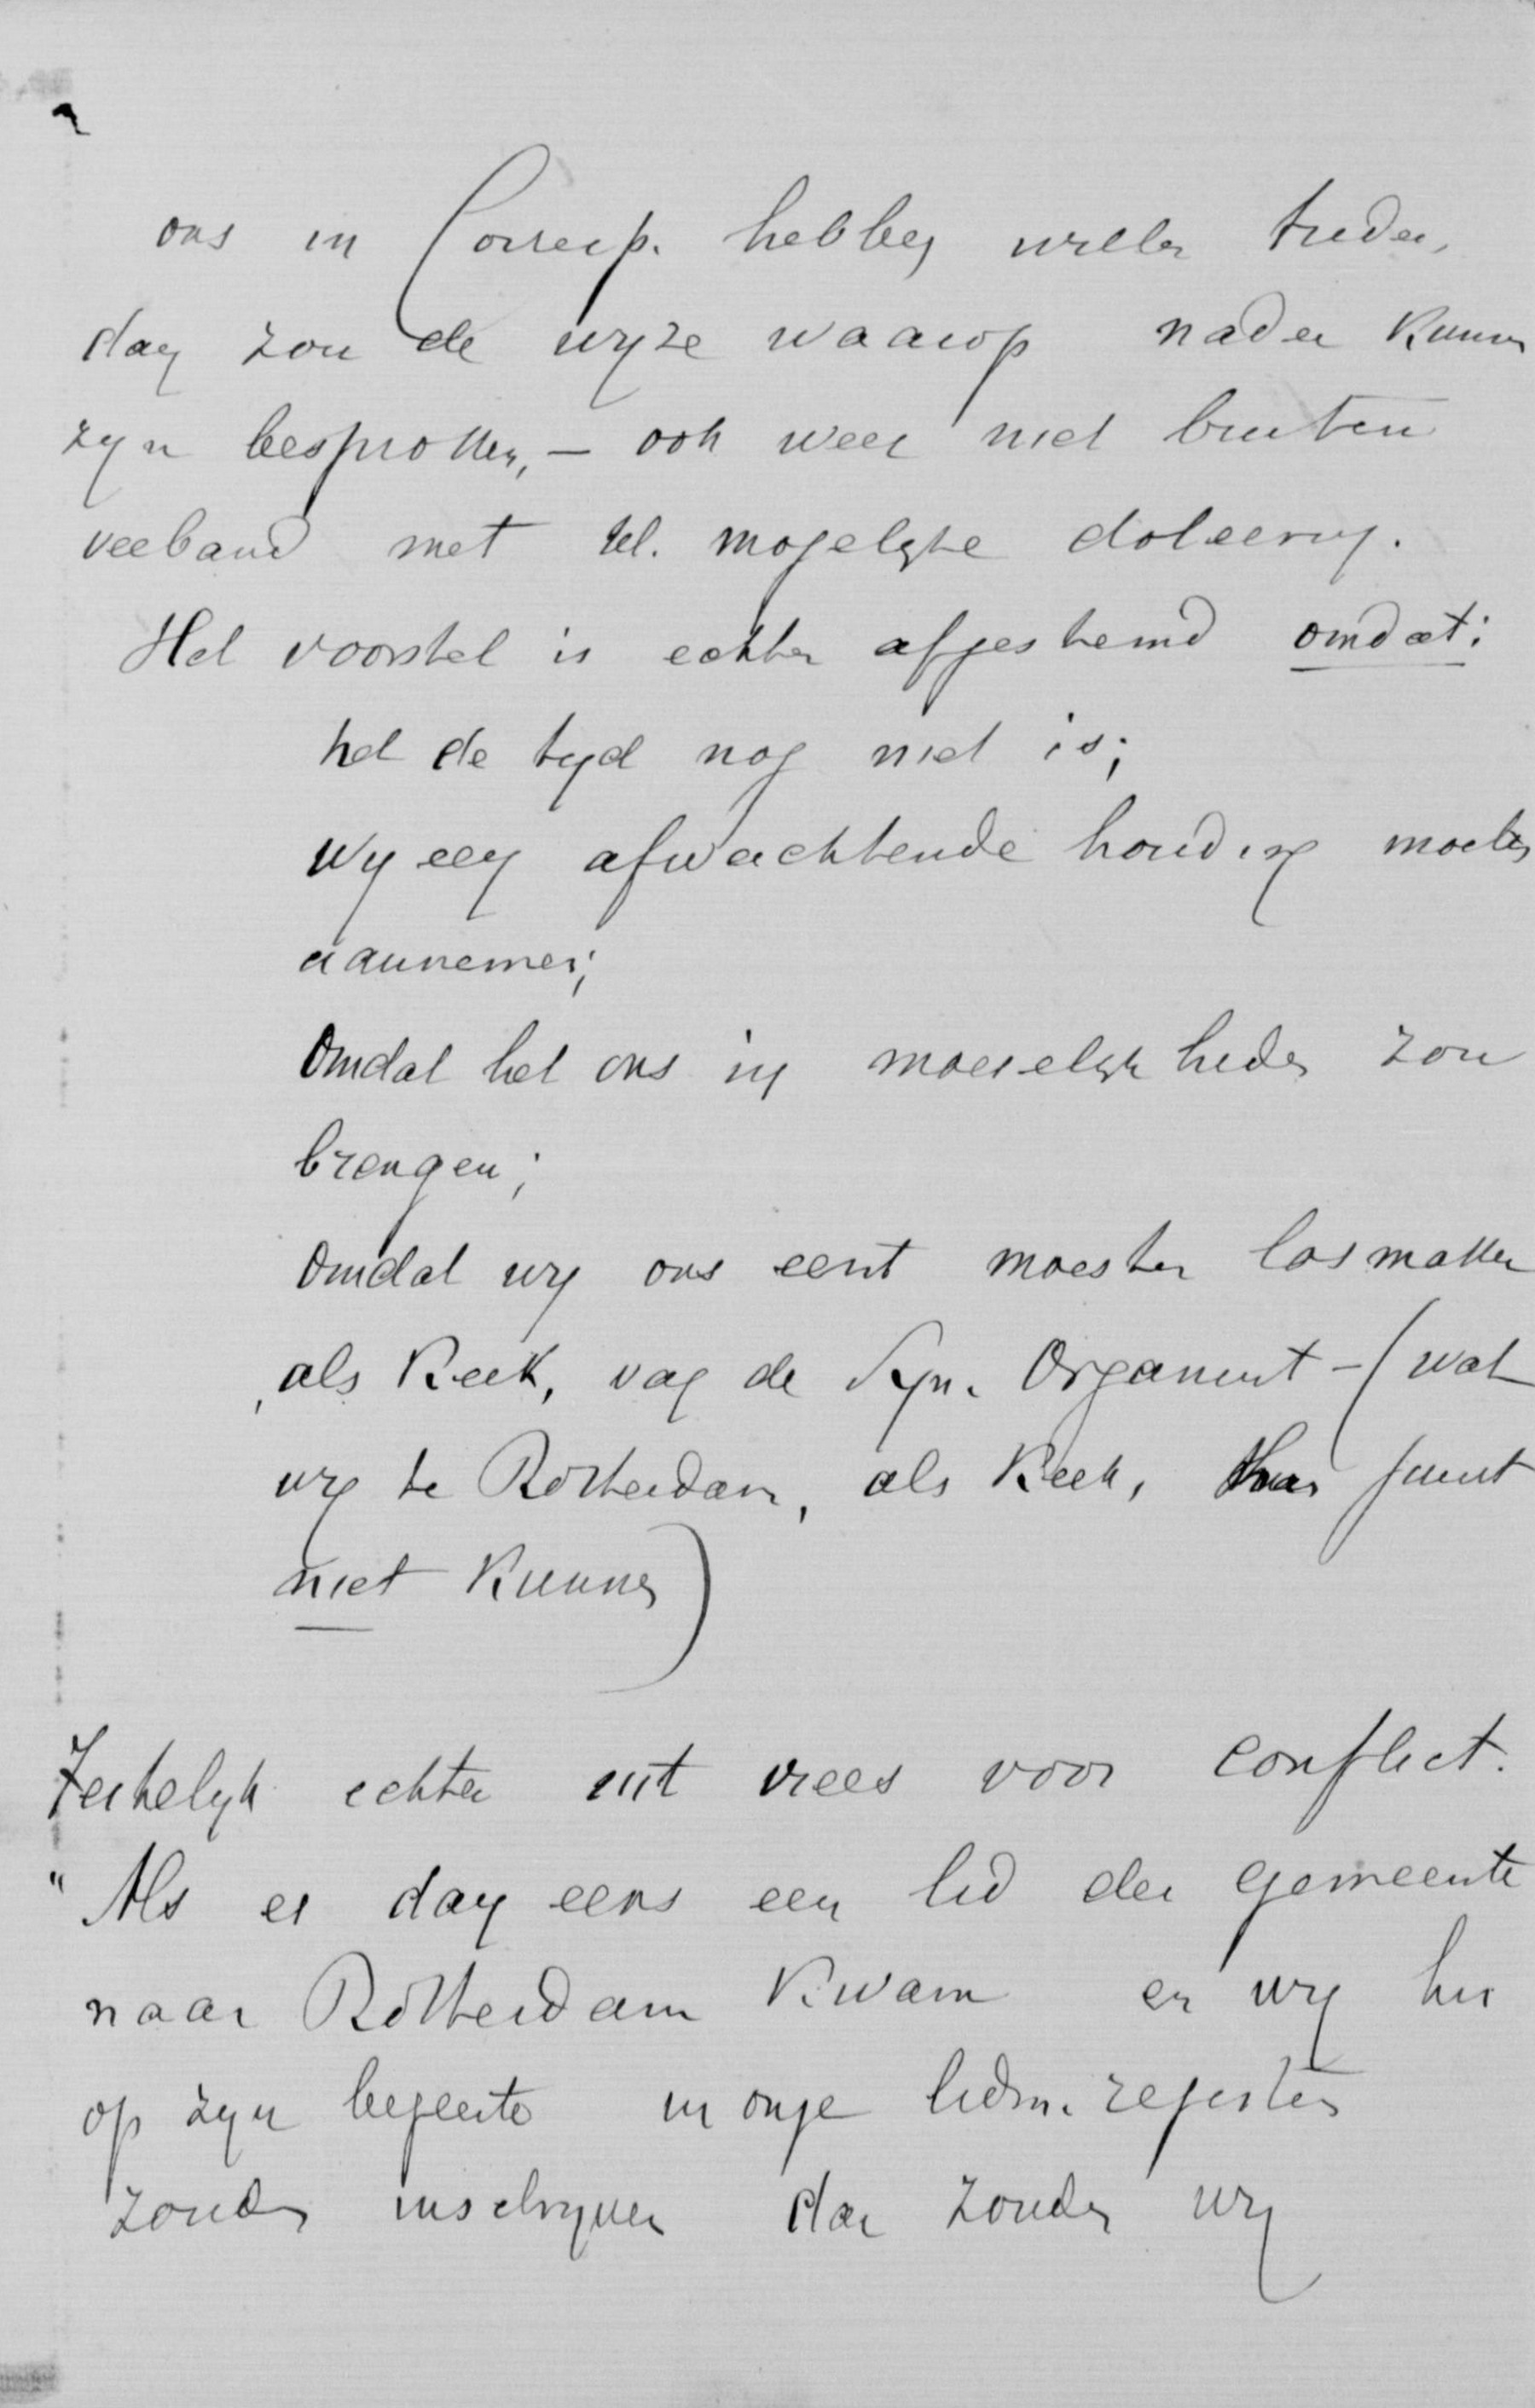 ons in Corresp. hebben willen treden,
dan zou de wyze waarop nader kunnen
zyn besproken, – ook weer niet buiten
verband met Ul. mogelyke doleering.
Het voorstel is echter afgestemd omdat:
het de tyd nog niet is;
Wy een afwachtende houding moeten
aannemen;
Omdat het ons in moeielykheden zou
brengen;
Omdat wy ons eerst moesten losmaken
als Kerk, van de Syn. Organisat – (wat
wy te Rotterdam, als Kerk, juist
niet kunnen)
Feitelyk echter uit vrees voor conflict.
"Als er dan eens een lid der gemeente
naar Rotterdam kwam en wy hier
op zyn begeerte in onze lidm. registers
zouden inschryven dan zouden wy